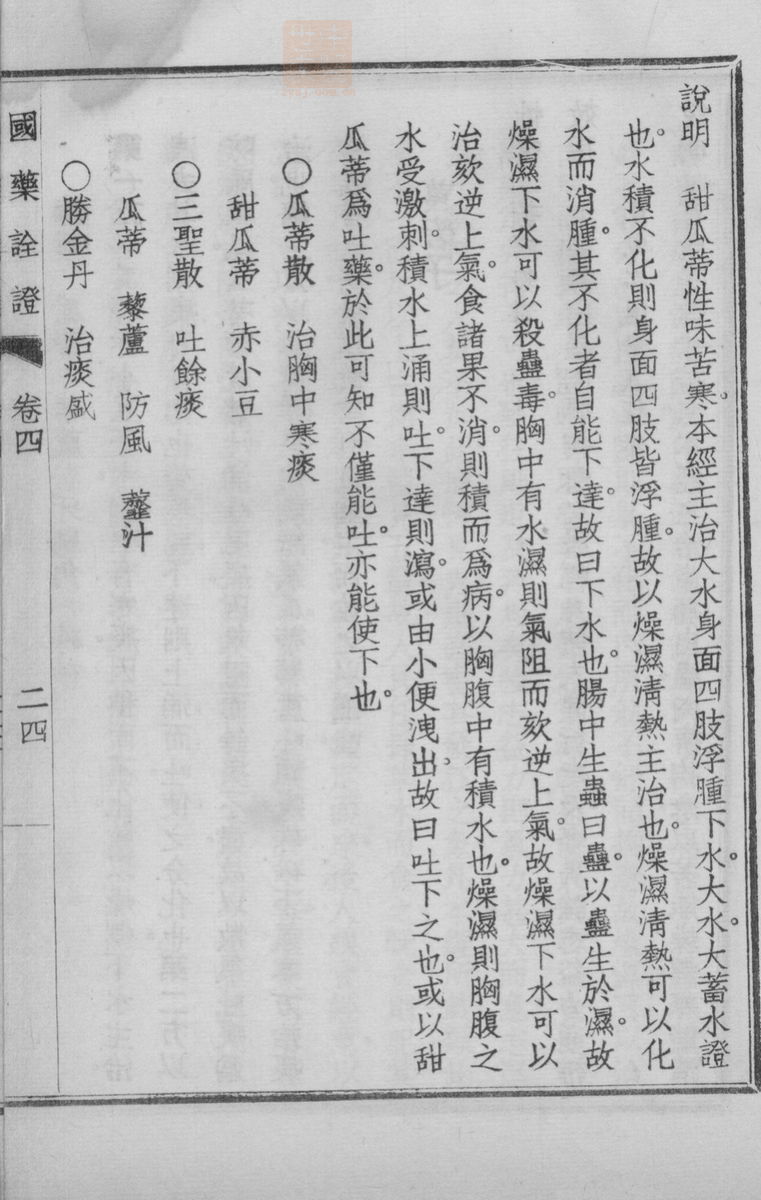 說明　甜瓜蒂性味苦寒。本經主治大水身面四肢浮腫下水。大水。大蓄水證
也。水積不化則身面四肢皆浮腫。故以燥濕淸熱主治也。燥濕淸熱可以化
水而消腫。其不化者自能下達。故曰下水也。腸中生蟲曰蠱。以蠱生於濕。故
燥濕下水可以殺蠱毒。胸中有水濕則氣阻而欬逆上氣。故燥濕下水可以
治欬逆上氣。食諸果不消。則積而爲病。以胸腹中有積水也。燥濕則胸腹之
水受激刺。積水上涌則吐。下達則瀉。或由小便洩出。故曰吐下之也。或以甜
瓜蒂爲吐藥。於此可知不僅能吐。亦能使下也。
○瓜蒂散　治胸中寒痰
甜瓜蒂　赤小豆
○三聖散　吐餘痰
瓜蒂　藜蘆　防風　虀汁
○勝金丹　治痰盛
國藥詮證　卷四　二四